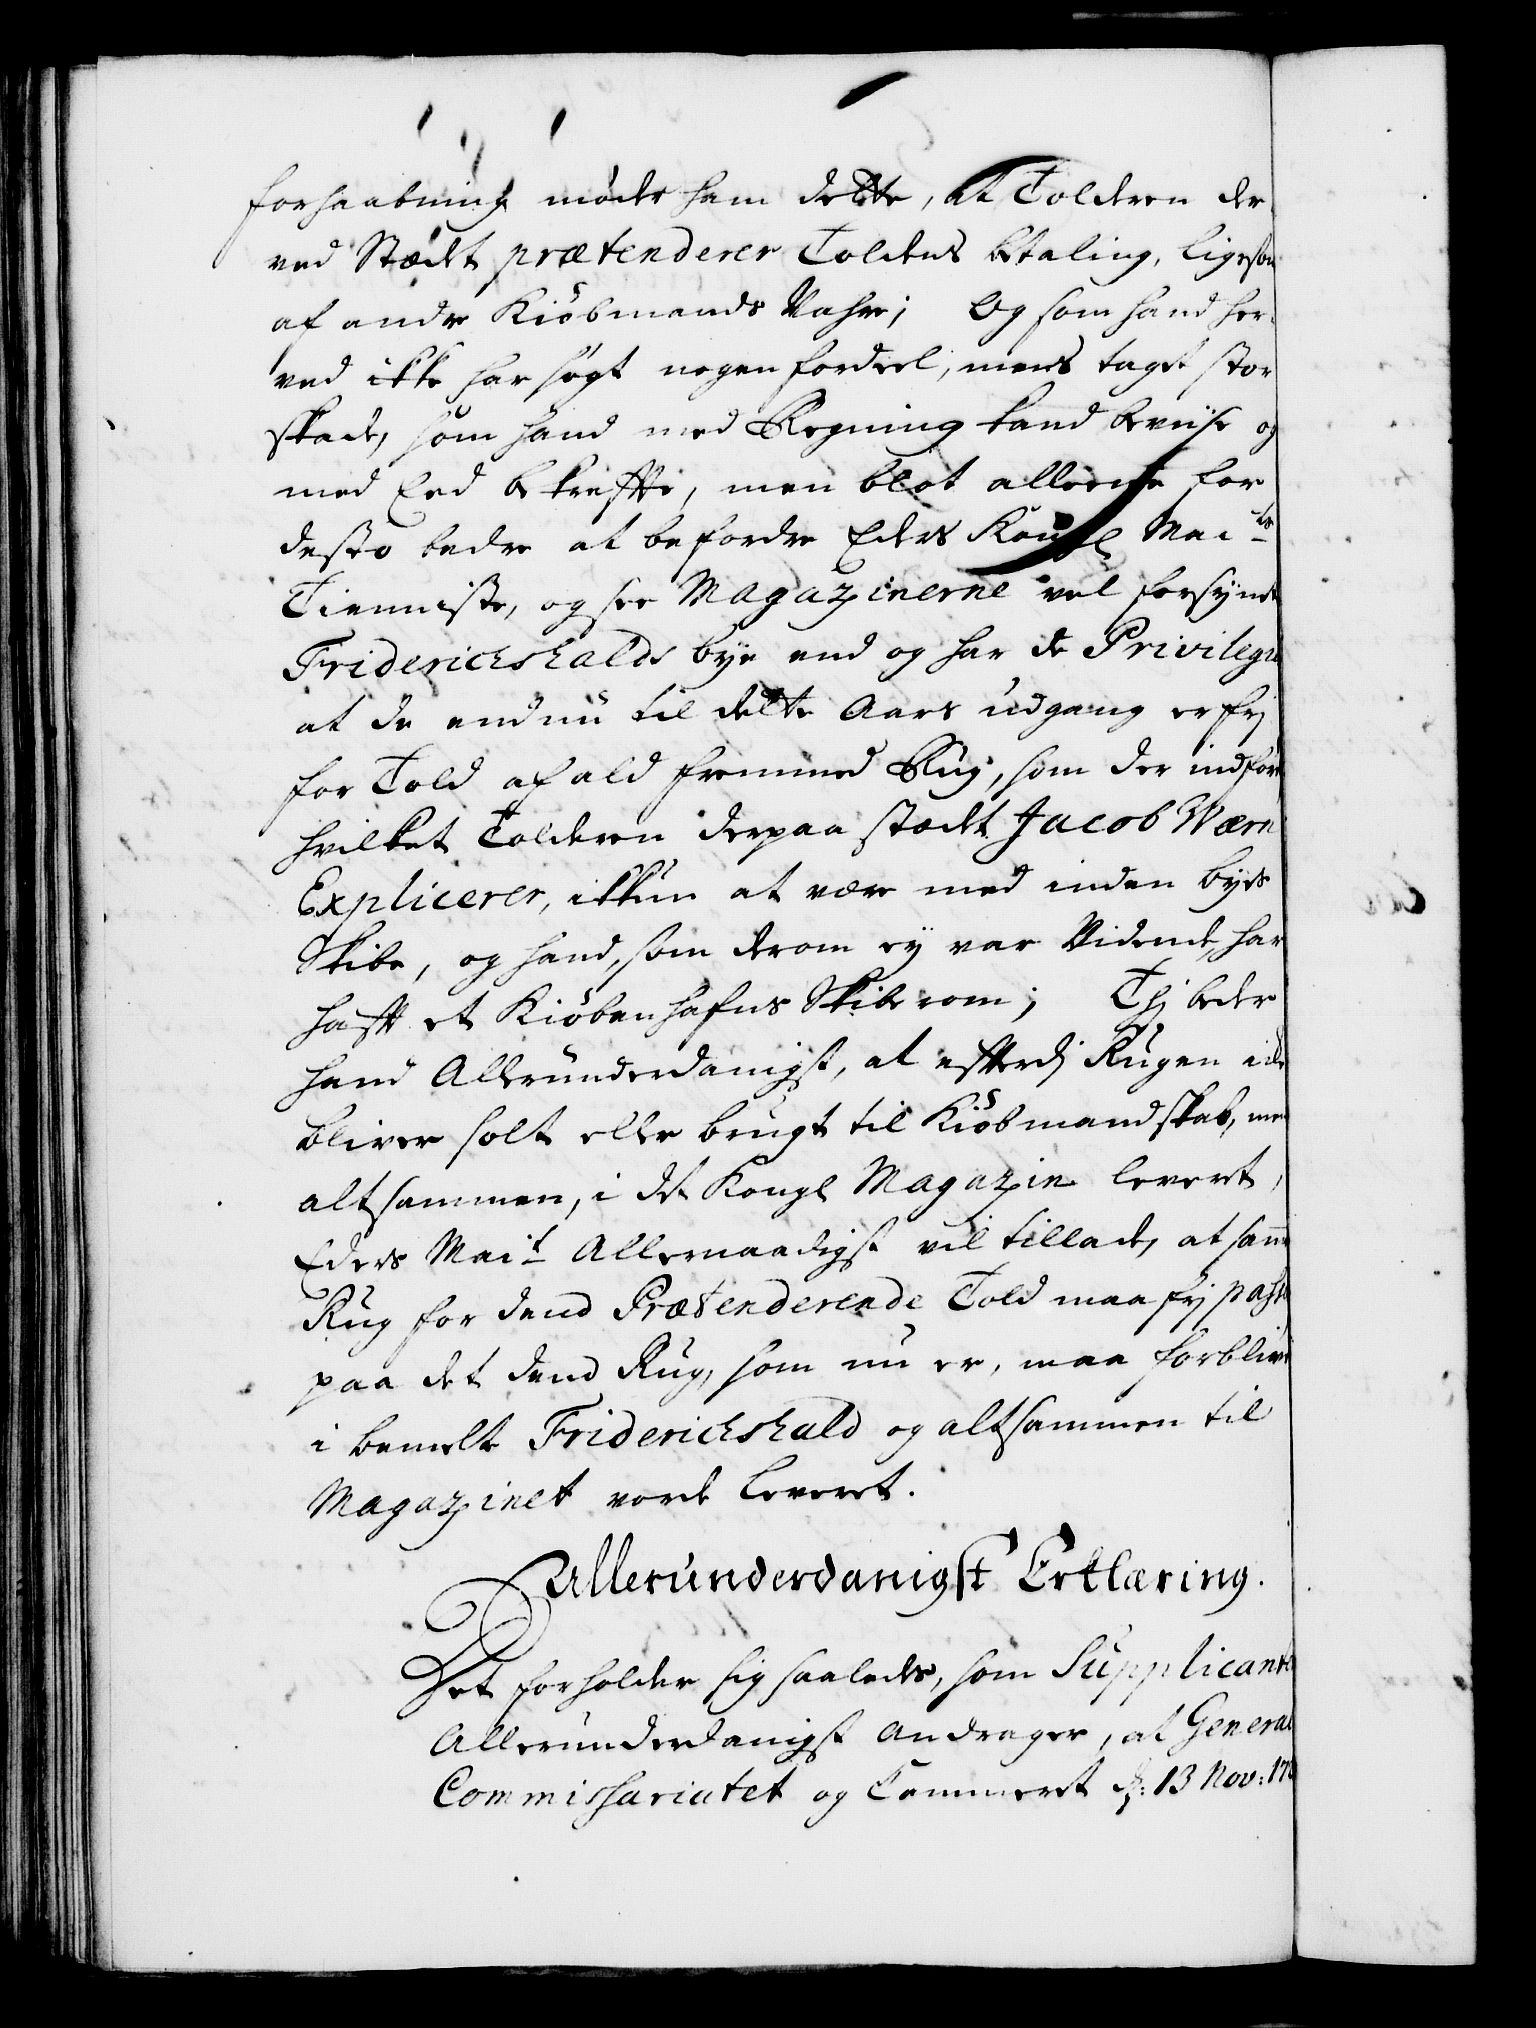 forhaabning møder ham dette, at Tolderen der
ved Stædet prætenderer Toldens betaling, ligesom
af andre Kiöbmands Vahre; Og som hand her-
ved ikke har søgt nogen fordeel, mens taget stor
skade, som hand med Regning kand beviise og
med Eed bekreffte, men blot alleene for
desto bedre at befordre Eders Kongl Mai ts
Tienniste, og see Magazinerne vel forsynet
Friderichshalds bye end og har de Privilegi
at de endnu til dette Aars udgang er frj
for Told af ald fremmed Rug, som der indføres
hvilket Tolderen derpaa stædet Jacob Wærn
Explicerer, ikkun at være med inden byes
Skibe, og hand, som derom ey var Vidende, har
hafft et Kiöbenhafns Skibs rom; Thj beder
hand Allerunderdanigst, at effterdj Rugen icke
bliver solt eller brugt til Kiöbmandskab, men
altsammen, i det Kongl Magazin leveret,
Eders Mai t Allernaadigst vil tillade, at samme
Rug for dend Prætenderende Told maa frj pahse
paa det dend Rug, som nu er, maa forblive
i bemelte Friderichshald og altsammen til
Magazinet vorde leveret.
Allerunderdanigst Erklæring.
Det forholder sig saaledes, som Supplicanten
Allerunderdanigst Andrager, at General
Commissariatet og Cammeret d: 13 Nov: